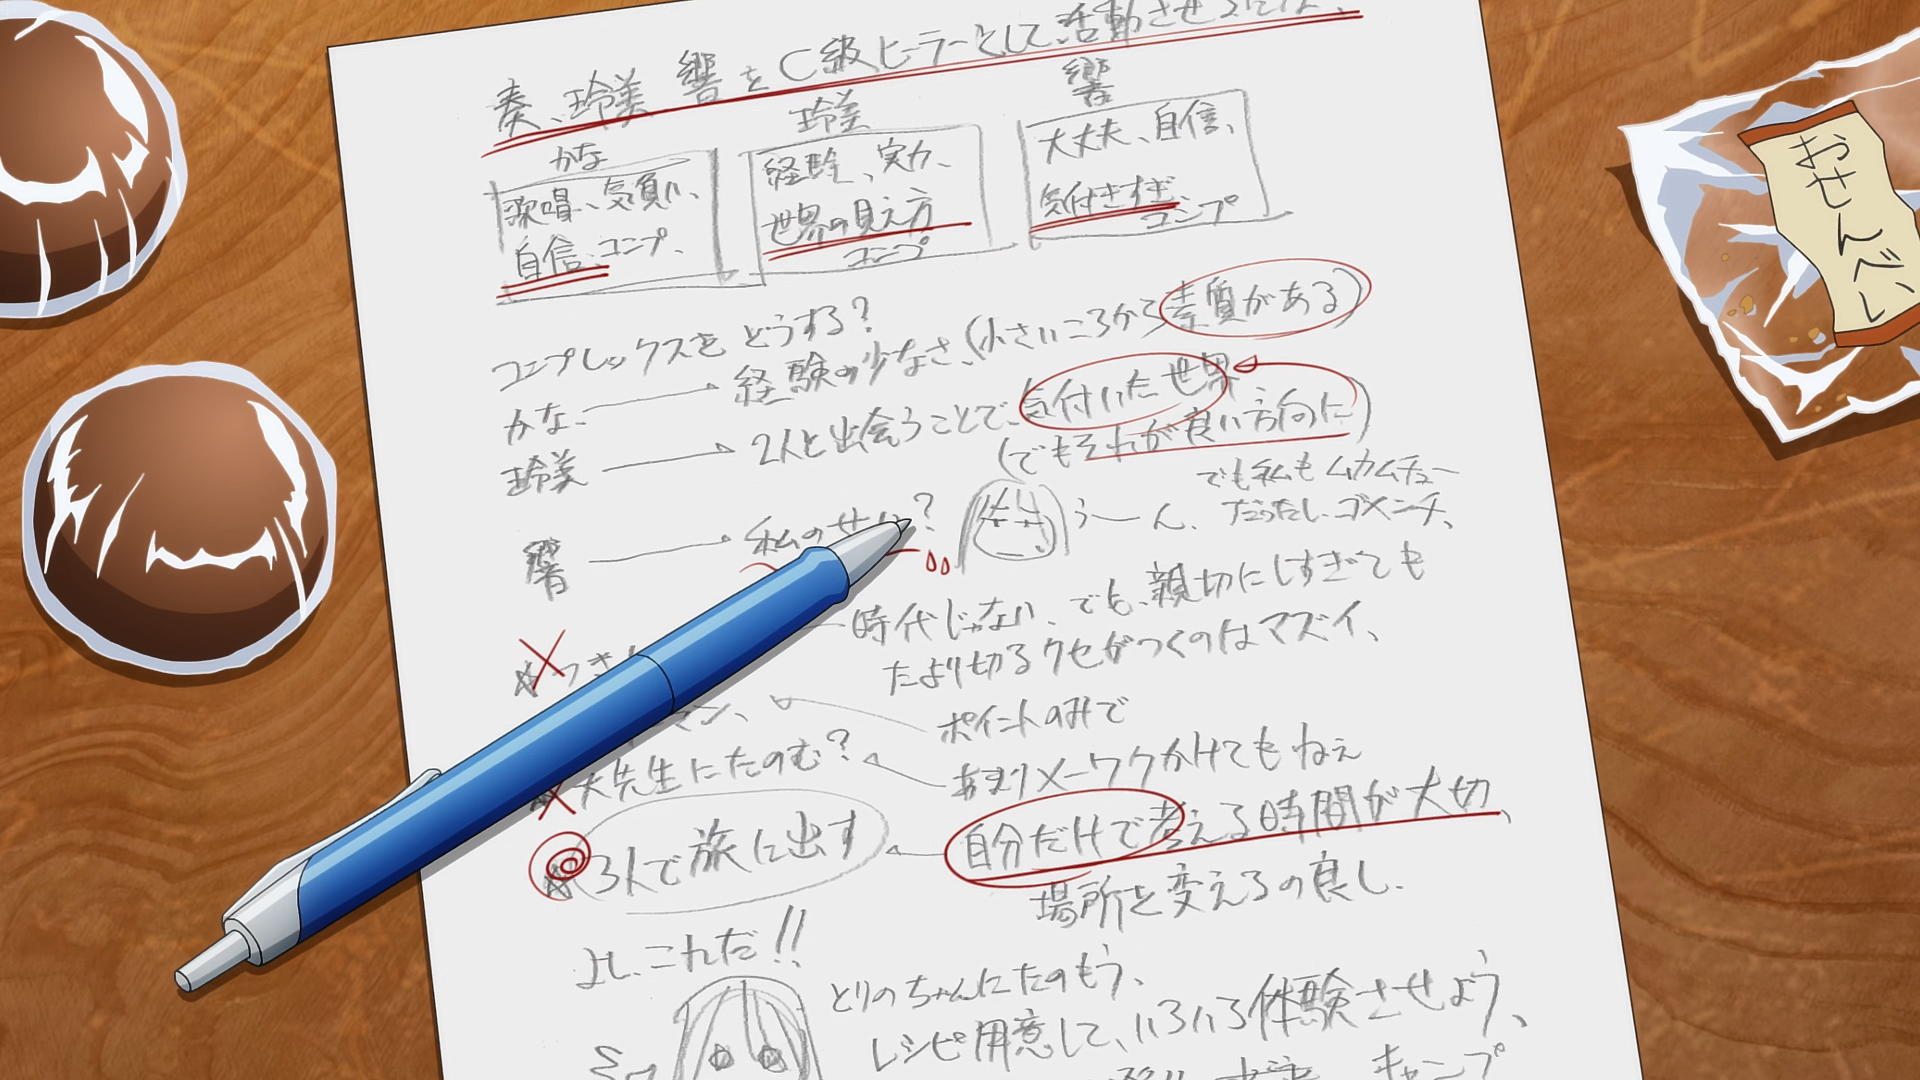 奏、玲美 響を C級ヒーラーとして活動させるには、
かな
歌唱、気負い、
自信、コンプ、
玲美
経験、実力、
世界の見え方
コンプ
響
大丈夫、自信、
気付きすぎ
コンプ
コンプレックスを どうする?
かな → 経験の少なさ、(小さいころから素質がある)
玲美 → 2人と出会うことで、気付いた世界
(でもそれが良い方向に)
響 → 私のせい?
うーん、
でも私もムカムチュー
だったし、ゴメンチ、
時代じゃない、でも、親切にしすぎても
たより切るクセがつくのはマズイ、
マン、
ポイントのみで
大先生にたのむ?
あまりメーワクかけてもねぇ
3人で旅に出す
自分だけで考える時間が大切、
場所を変えるの良し、
よし、これだ!!
とりのちゃんにたのもう、
レシピ用意して、いろいろ体験させよう、
キャンプ
おせんべい